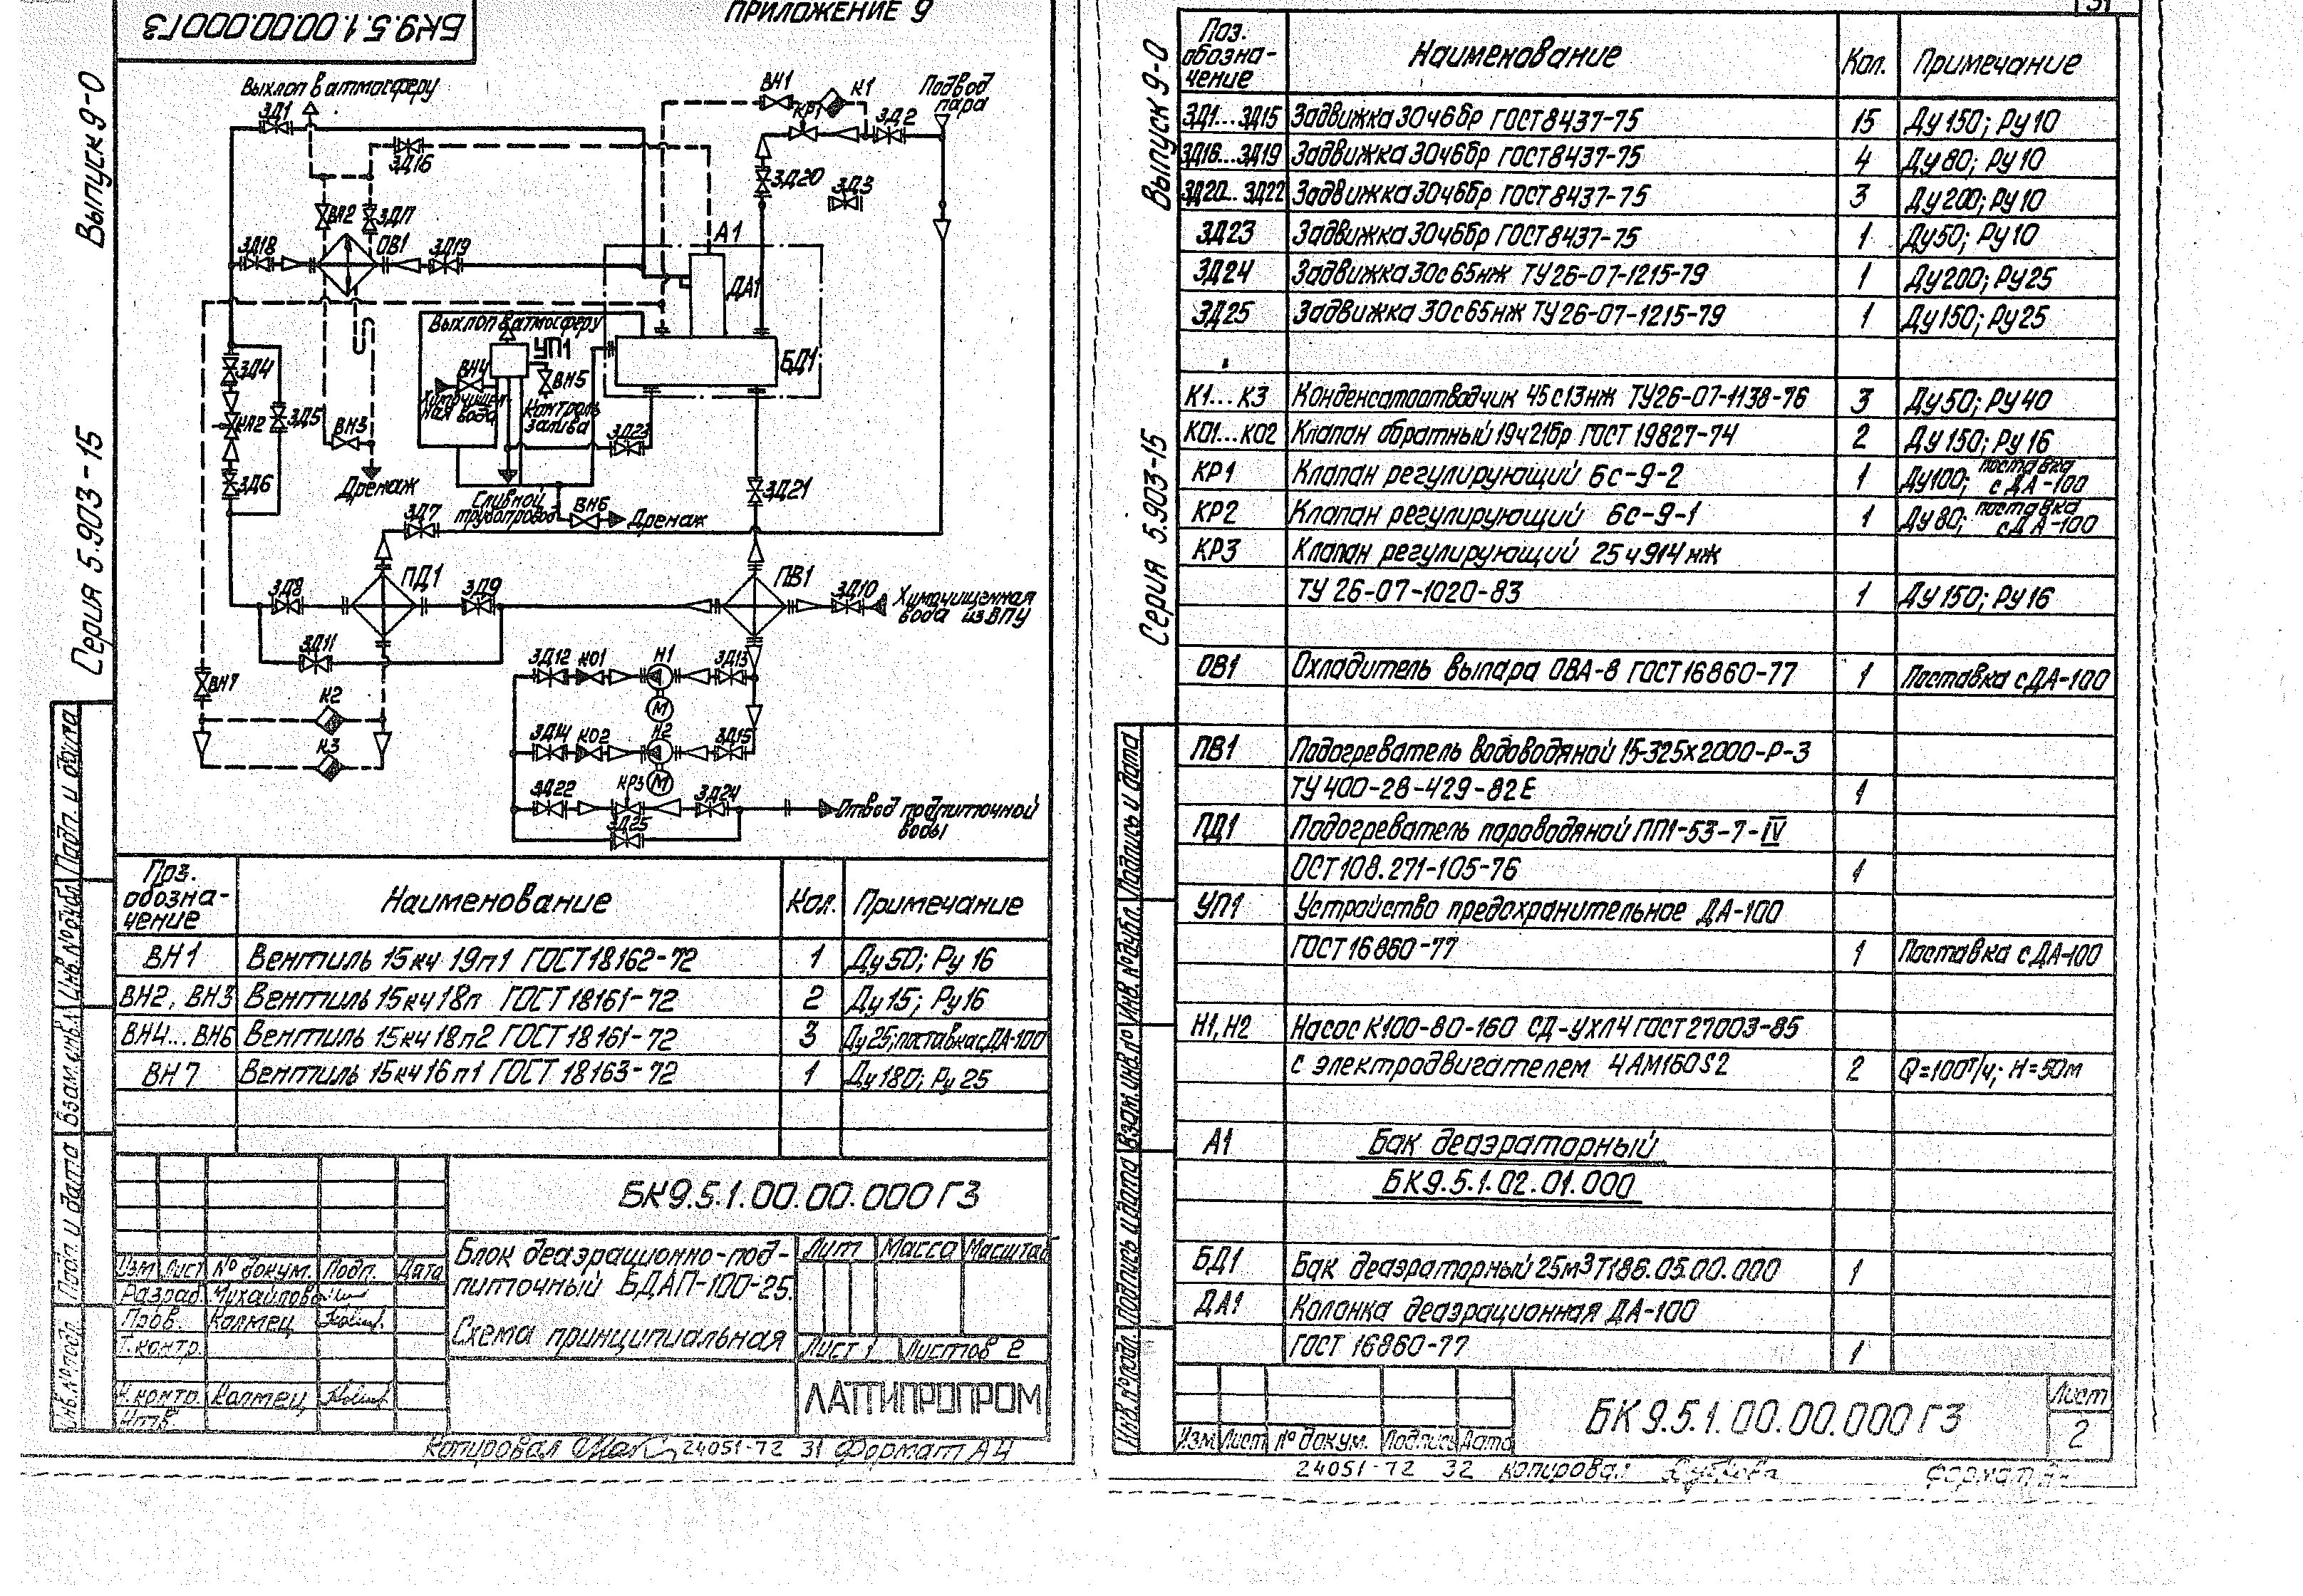 ПРИЛОЖЕНИЕ 9
БК9.5.1.00.00.000Г3
Выпуск 9-0
Серия 5.903-15
Выхлоп в атмосферу
ЗД1
ЗД16
ВН1
К1
КР1
ЗД2
Подвод
пара
ЗД20
ЗД3
ВН2
ЗД17
ЗД18
ОВ1
ЗД19
А1
ДА1
Выхлоп в атмосферу
УП1
БД1
ВН4
ВН5
Химочищен-
ная вода
Контроль
залива
ЗД4
КР2
ЗД5
ВН3
ЗД23
ЗД6
Дренаж
Сливной
трубопровод
ВН6
Дренаж
ЗД21
ЗД7
ЗД8
ПД1
ЗД9
ПВ1
ЗД10
Химочищенная
вода из ВПУ
ЗД11
ВН7
К2
К3
ЗД12
КО1
Н1
ЗД13
М
ЗД14
КО2
Н2
ЗД15
М
ЗД22
КР3
ЗД24
ЗД25
Отвод подпиточной
воды
Поз. обозна-чение Наименование Кол. Примечание
ВН1 Вентиль 15кч 19п1 ГОСТ 18162-72 1 Ду50; Ру 16
ВН2, ВН3 Вентиль 15кч 18п ГОСТ 18161-72 2 Ду15; Ру16
ВН4...ВН6 Вентиль 15кч 18п2 ГОСТ 18161-72 3 Ду25; поставка с ДА-100
ВН7 Вентиль 15кч 16п1 ГОСТ 18163-72 1 Ду180; Ру 25
БК9.5.1.00.00.000Г3
Блок деаэрационно-под-
питочный БДАП-100-25.
Схема принципиальная
Лит Масса Масштаб
Лист 1 Листов 2
ЛАТГИПРОПРОМ
Изм Лист № докум. Подп. Дата
Разраб. Михайлова
Пров. Калмец
Т.контр.
Н.контр. Калмец
Утв.
Инв.№ подл. Подп. и дата Взам.инв.№ Инв.№ дубл. Подп. и дата
Копировал 24051-72 31 Формат А4
31
Выпуск 9-0
Серия 5.903-15
Поз. обозна-чение Наименование Кол. Примечание
ЗД1...ЗД15 Задвижка 30ч6бр ГОСТ 8437-75 15 Ду 150; Ру 10
ЗД16...ЗД19 Задвижка 30ч6бр ГОСТ 8437-75 4 Ду 80; Ру 10
ЗД20...ЗД22 Задвижка 30ч6бр ГОСТ 8437-75 3 Ду 200; Ру 10
ЗД23 Задвижка 30ч6бр ГОСТ 8437-75 1 Ду50; Ру 10
ЗД24 Задвижка 30с 65нж ТУ 26-07-1215-79 1 Ду200; Ру25
ЗД25 Задвижка 30с65нж ТУ 26-07-1215-79 1 Ду150; Ру25
К1...К3 Конденсатоотводчик 45с13нж ТУ26-07-1138-76 3 Ду 50; Ру 40
КО1...КО2 Клапан обратный 19ч21бр ГОСТ 19827-74 2 Ду 150; Ру 16
КР1 Клапан регулирующий 6с-9-2 1 Ду100; поставка с ДА-100
КР2 Клапан регулирующий 6с-9-1 1 Ду 80; поставка с ДА-100
КР3 Клапан регулирующий 25ч914нж
ТУ 26-07-1020-83 1 Ду 150; Ру 16
ОВ1 Охладитель выпара ОВА-8 ГОСТ 16860-77 1 Поставка с ДА-100
ПВ1 Подогреватель водоводяной 15-325х2000-Р-3
ТУ 400-28-429-82Е 1
ПД1 Подогреватель пароводяной ПП1-53-7-IV
ОСТ 108.271-105-76 1
УП1 Устройство предохранительное ДА-100
ГОСТ 16860-77 1 Поставка с ДА-100
Н1, Н2 Насос К100-80-160 СД-УХЛ4 ГОСТ 27003-85
с электродвигателем 4АМ160S2 2 Q=100т/ч; Н=50м
А1 Бак деаэраторный
БК9.5.1.02.01.000
БД1 Бак деаэраторный 25м³ Т186.05.00.000 1
ДА1 Колонка деаэрационная ДА-100
ГОСТ 16860-77 1
БК9.5.1.00.00.000Г3
Лист
2
Изм Лист № докум. Подпись Дата
Инв.№ подл. Подпись и дата Взам.инв.№ Инв.№ дубл. Подпись и дата
24051-72 32 Копировал